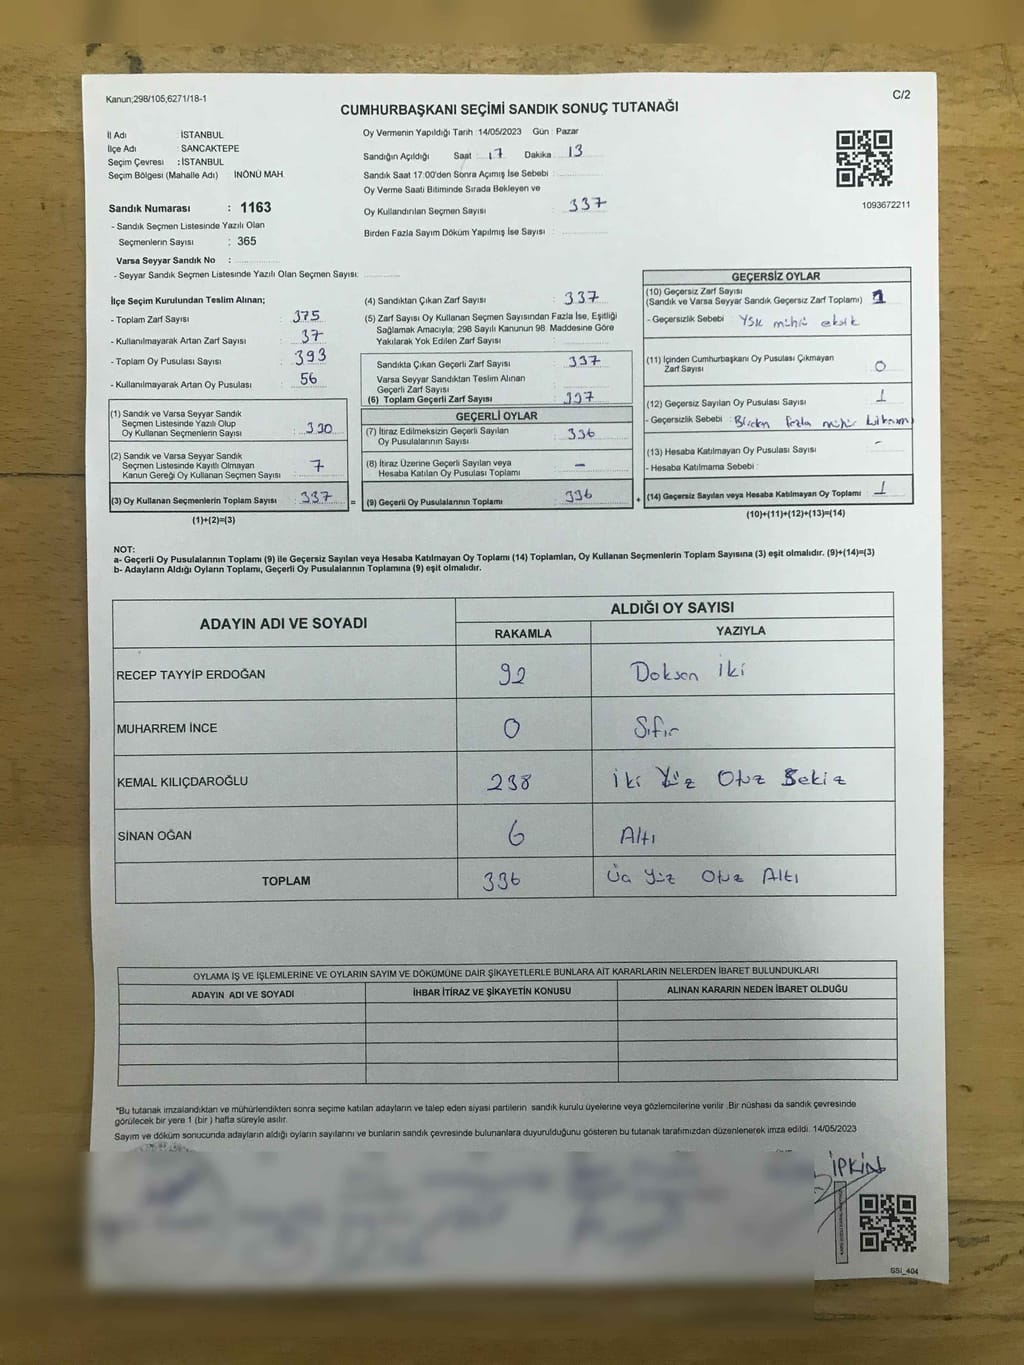 Kanun;298/105,6271/18-1
C/2
CUMHURBAŞKANI SEÇİMİ SANDIK SONUÇ TUTANAĞI
İl Adı : İSTANBUL
İlçe Adı : SANCAKTEPE
Seçim Çevresi : İSTANBUL
Seçim Bölgesi (Mahalle Adı) İNÖNÜ MAH.
Sandık Numarası : 1163
- Sandık Seçmen Listesinde Yazılı Olan
Seçmenlerin Sayısı : 365
Varsa Seyyar Sandık No :
- Seyyar Sandık Seçmen Listesinde Yazılı Olan Seçmen Sayısı:
Oy Vermenin Yapıldığı Tarih : 14/05/2023 Gün : Pazar
Sandığın Açıldığı Saat : 17 Dakika : 13
Sandık Saat 17:00'den Sonra Açımış İse Sebebi :
Oy Verme Saati Bitiminde Sırada Bekleyen ve
Oy Kullandırılan Seçmen Sayısı : 337
Birden Fazla Sayım Döküm Yapılmış İse Sayısı :
1093672211
İlçe Seçim Kurulundan Teslim Alınan;
- Toplam Zarf Sayısı : 375
- Kullanılmayarak Artan Zarf Sayısı : 37
- Toplam Oy Pusulası Sayısı : 393
- Kullanılmayarak Artan Oy Pusulası : 56
(1) Sandık ve Varsa Seyyar Sandık
Seçmen Listesinde Yazılı Olup
Oy Kullanan Seçmenlerin Sayısı : 330
(2) Sandık ve Varsa Seyyar Sandık
Seçmen Listesinde Kayıtlı Olmayan
Kanun Gereği Oy Kullanan Seçmen Sayısı : 7
(3) Oy Kullanan Seçmenlerin Toplam Sayısı : 337
(1)+(2)=(3)
=
(4) Sandıktan Çıkan Zarf Sayısı : 337
(5) Zarf Sayısı Oy Kullanan Seçmen Sayısından Fazla İse, Eşitliği
Sağlamak Amacıyla; 298 Sayılı Kanunun 98. Maddesine Göre
Yakılarak Yok Edilen Zarf Sayısı :
Sandıkta Çıkan Geçerli Zarf Sayısı : 337
Varsa Seyyar Sandıktan Teslim Alınan
Geçerli Zarf Sayısı :
(6) Toplam Geçerli Zarf Sayısı : 337
GEÇERLİ OYLAR
(7) İtiraz Edilmeksizin Geçerli Sayılan
Oy Pusulalarının Sayısı : 336
(8) İtiraz Üzerine Geçerli Sayılan veya
Hesaba Katılan Oy Pusulası Toplamı : -
(9) Geçerli Oy Pusulalarının Toplamı : 336
+
GEÇERSİZ OYLAR
(10) Geçersiz Zarf Sayısı
(Sandık ve Varsa Seyyar Sandık Geçersiz Zarf Toplamı) : 1
- Geçersizlik Sebebi : YSK mührü eksik
(11) İçinden Cumhurbaşkanı Oy Pusulası Çıkmayan
Zarf Sayısı : 0
(12) Geçersiz Sayılan Oy Pusulası Sayısı : 1
- Geçersizlik Sebebi : Birden fazla mühür
(13) Hesaba Katılmayan Oy Pusulası Sayısı : -
- Hesaba Katılmama Sebebi :
(14) Geçersiz Sayılan veya Hesaba Katılmayan Oy Toplamı : 1
(10)+(11)+(12)+(13)=(14)
NOT:
a- Geçerli Oy Pusulalarının Toplamı (9) ile Geçersiz Sayılan veya Hesaba Katılmayan Oy Toplamı (14) Toplamları, Oy Kullanan Seçmenlerin Toplam Sayısına (3) eşit olmalıdır. (9)+(14)=(3)
b- Adayların Aldığı Oyların Toplamı, Geçerli Oy Pusulalarının Toplamına (9) eşit olmalıdır.
ADAYIN ADI VE SOYADI
ALDIĞI OY SAYISI
RAKAMLA YAZIYLA
RECEP TAYYİP ERDOĞAN 92 Doksan İki
MUHARREM İNCE 0 Sıfır
KEMAL KILIÇDAROĞLU 238 İki Yüz Otuz Sekiz
SİNAN OĞAN 6 Altı
TOPLAM 336 Üç Yüz Otuz Altı
OYLAMA İŞ VE İŞLEMLERİNE VE OYLARIN SAYIM VE DÖKÜMÜNE DAİR ŞİKAYETLERLE BUNLARA AİT KARARLARIN NELERDEN İBARET BULUNDUKLARI
ADAYIN ADI VE SOYADI İHBAR İTİRAZ VE ŞİKAYETİN KONUSU ALINAN KARARIN NEDEN İBARET OLDUĞU
*Bu tutanak imzalandıktan ve mühürlendikten sonra seçime katılan adayların ve talep eden siyasi partilerin sandık kurulu üyelerine veya gözlemcilerine verilir. Bir nüshası da sandık çevresinde
görülecek bir yere 1 (bir) hafta süreyle asılır.
Sayım ve döküm sonucunda adayların aldığı oyların sayılarını ve bunların sandık çevresinde bulunanlara duyurulduğunu gösteren bu tutanak tarafımızdan düzenlenerek imza edildi. 14/05/2023
İPKİN
SSİ_404